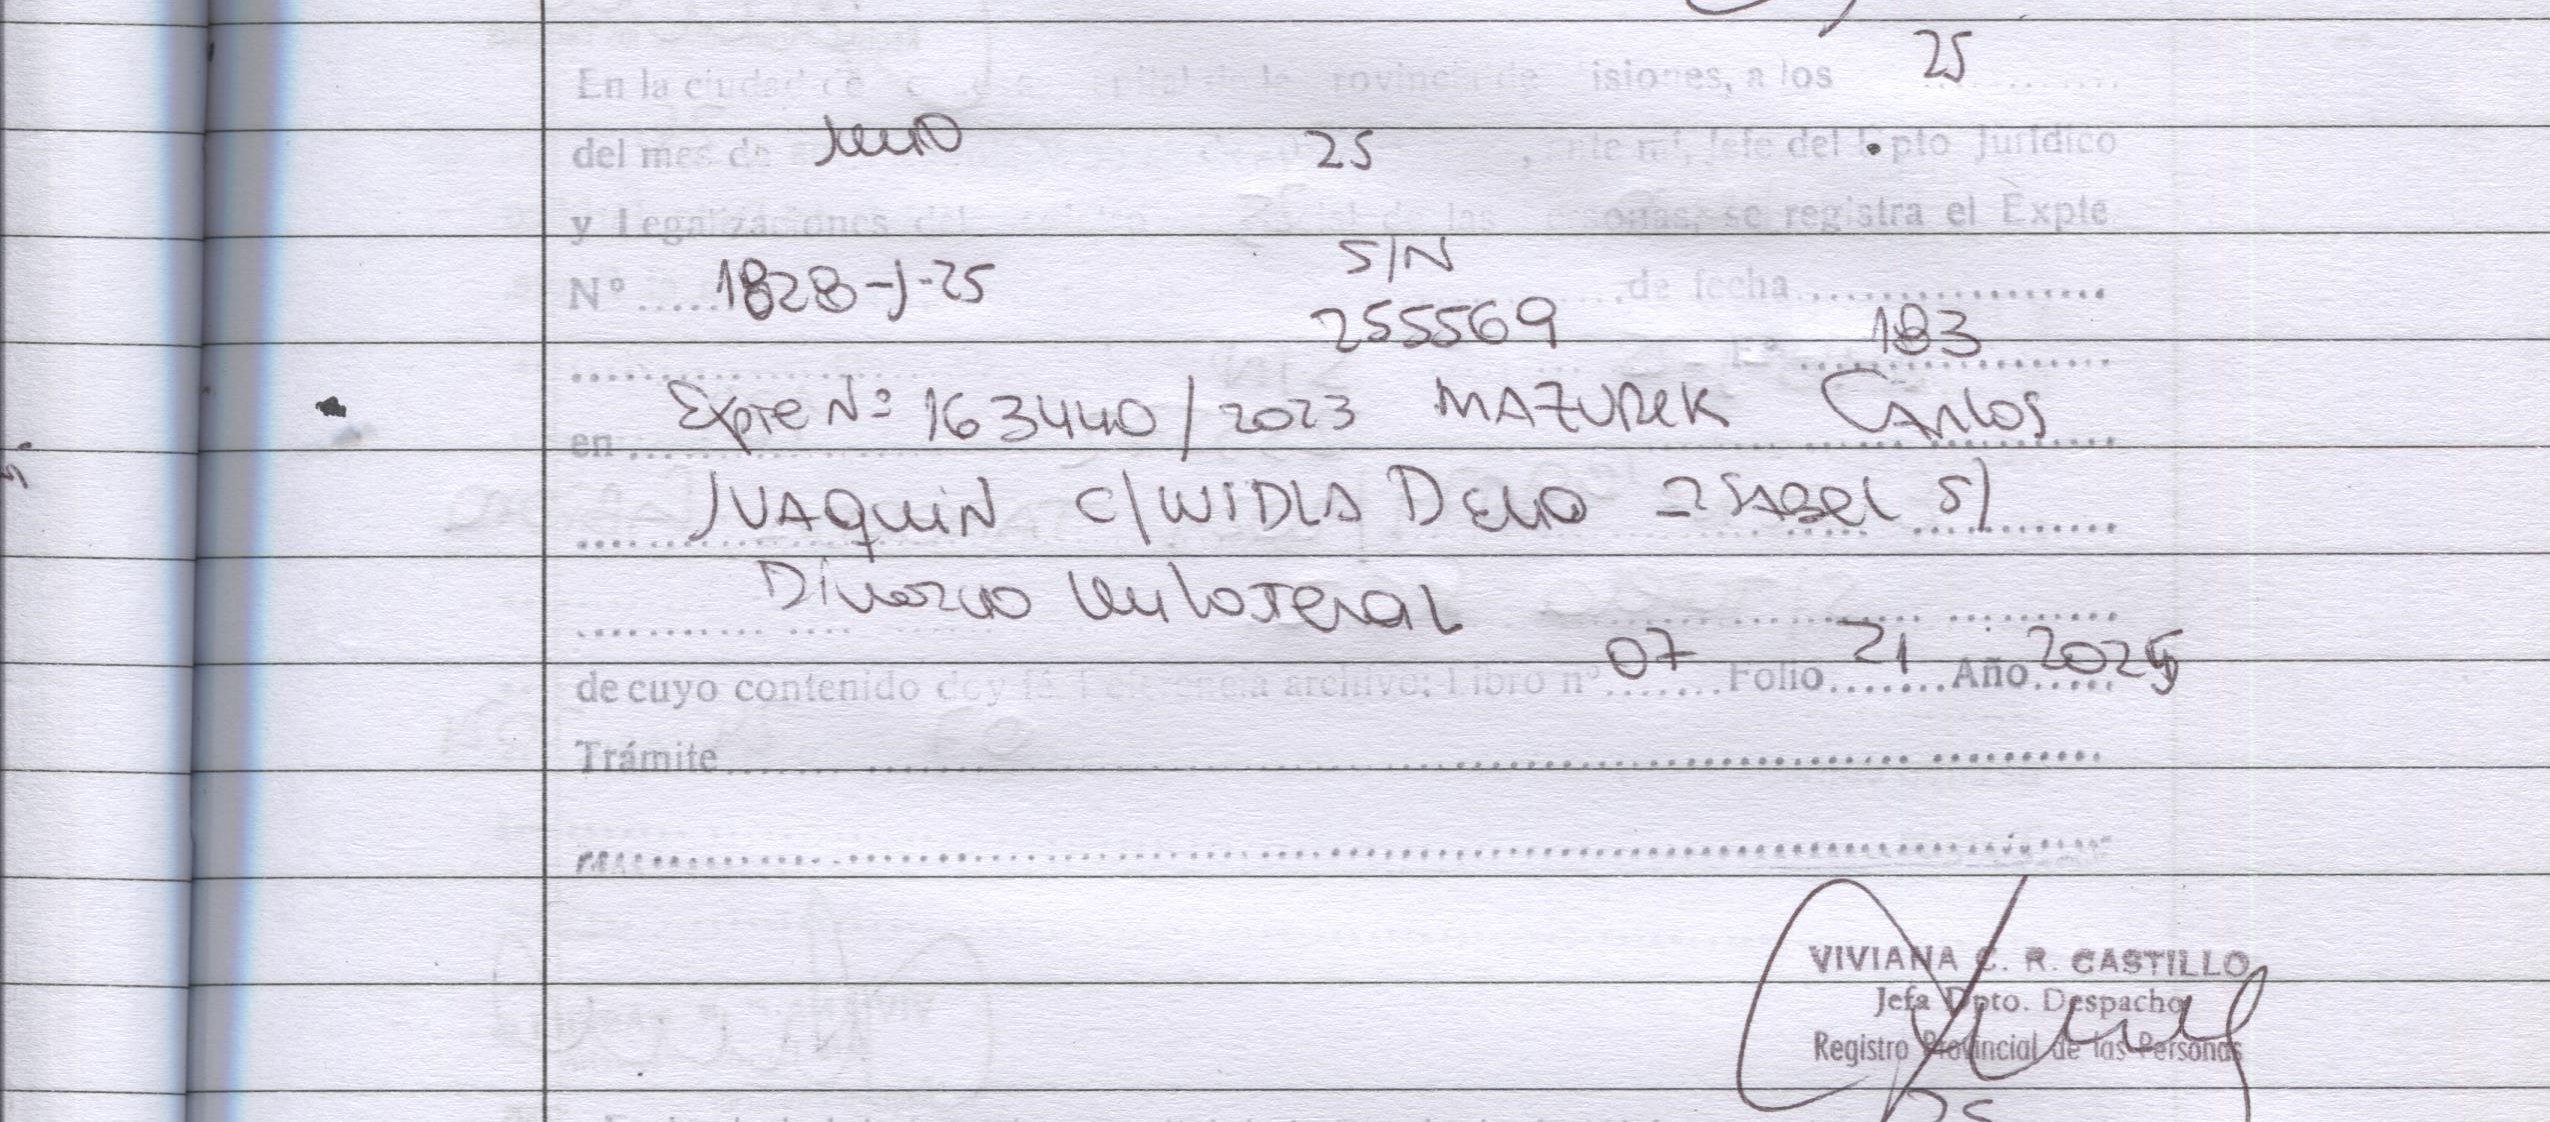 25
En la ciudad de provincia de Misiones, a los
Junio 25
del mes de , ante mí, Jefe del Dpto Jurídico
y Legalizaciones del las Personas, se registra el Expte
S/N
Nº ..... 1828-J-25 de fecha ..................
255569 183
Eº ..................
Expte Nº 163440/2023 MAZUREK CARLOS
en ...................
JUAQUIN C/WIDLA DELIA ISABEL S/
Divorcio Unilateral
07 21 2025
de cuyo contenido doy fé. Referencia archivo: Libro nº ....... Folio ....... Año .....
Trámite ..................
VIVIANA C. R. CASTILLO
Jefa Dpto. Despacho
Registro Provincial de las Personas
25